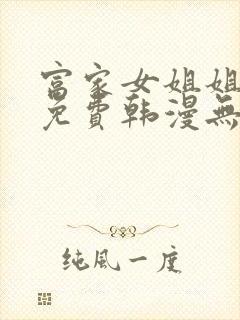 富家女姐姐
免費韩漫無
纯風一度